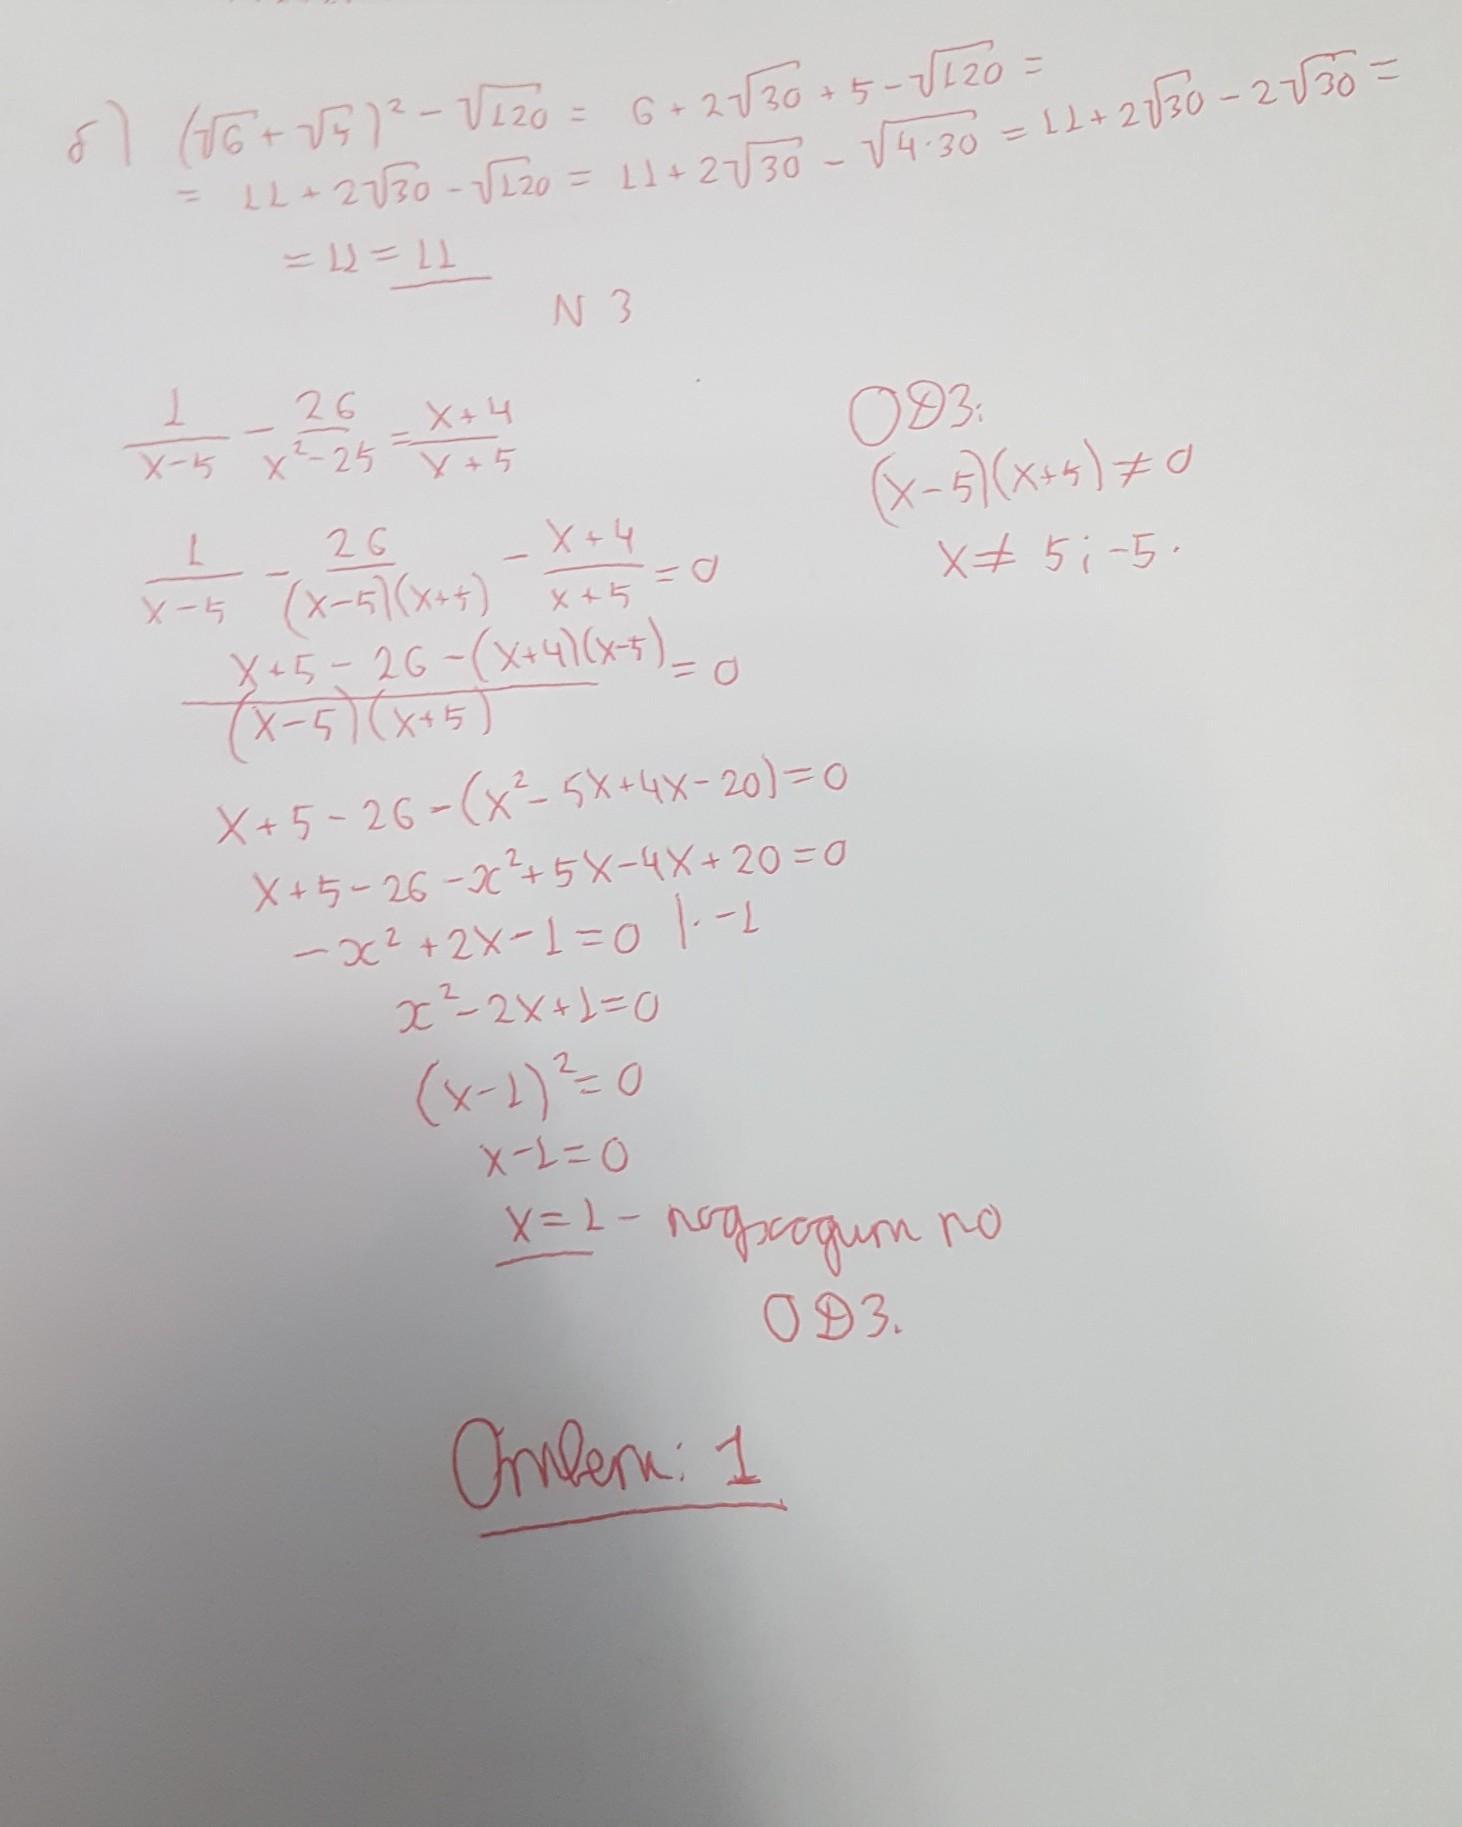 б) (√6 + √5)² - √120 = 6 + 2√30 + 5 - √120 =
= 11 + 2√30 - √120 = 11 + 2√30 - √4·30 = 11 + 2√30 - 2√30 =
= 11 = 11
N 3
1/(x-5) - 26/(x²-25) = (x+4)/(x+5)
ОДЗ:
(x-5)(x+5) ≠ 0
x ≠ 5; -5.
1/(x-5) - 26/((x-5)(x+5)) - (x+4)/(x+5) = 0
(x+5-26-(x+4)(x-5))/((x-5)(x+5)) = 0
x+5-26-(x²-5x+4x-20)=0
x+5-26-x²+5x-4x+20=0
-x²+2x-1=0 |·-1
x²-2x+1=0
(x-1)²=0
x-1=0
x=1 - подходит по
ОДЗ.
Ответ: 1